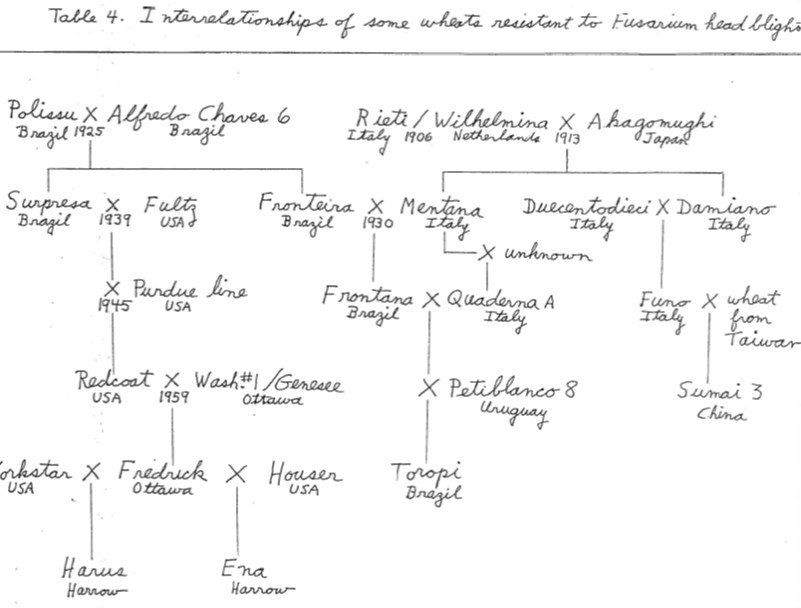 Table 4. Interrelationships of some wheats resistant to Fusarium head blight
Polissu X Alfredo Chaves 6 Rieti / Wilhelmina X Akagomughi
Brazil 1925 Brazil Italy 1906 Netherlands 1913 Japan
Surpresa X Fultz Fronteira X Mentana Duecentodieci X Damiano
Brazil 1939 USA Brazil 1930 Italy Italy Italy
X unknown
X Purdue line Frontana X Quaderna A Funo X wheat
1945 USA Brazil Italy Italy from
Taiwan
Redcoat X Wash #1 / Genesee X Petiblanco 8 Sumai 3
USA 1959 Ottawa Uruguay China
orkstar X Fredrick X Houser Toropi
USA Ottawa USA Brazil
Harus Ena
Harrow Harrow